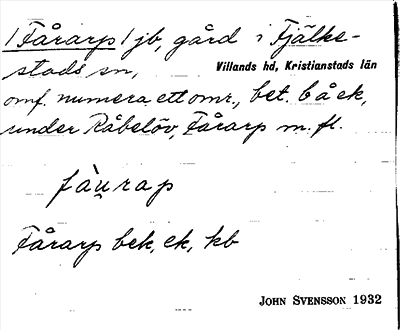 /Fårarp/ jb, gård i Fjälke-
stads sn, Villands hd, Kristianstads län
omf. numera ett omr., bet. b å ek,
under Råbelöv, Fårarp m. fl.
fàu̯rap
Fårarp bek, ek, kb
JOHN SVENSSON 1932